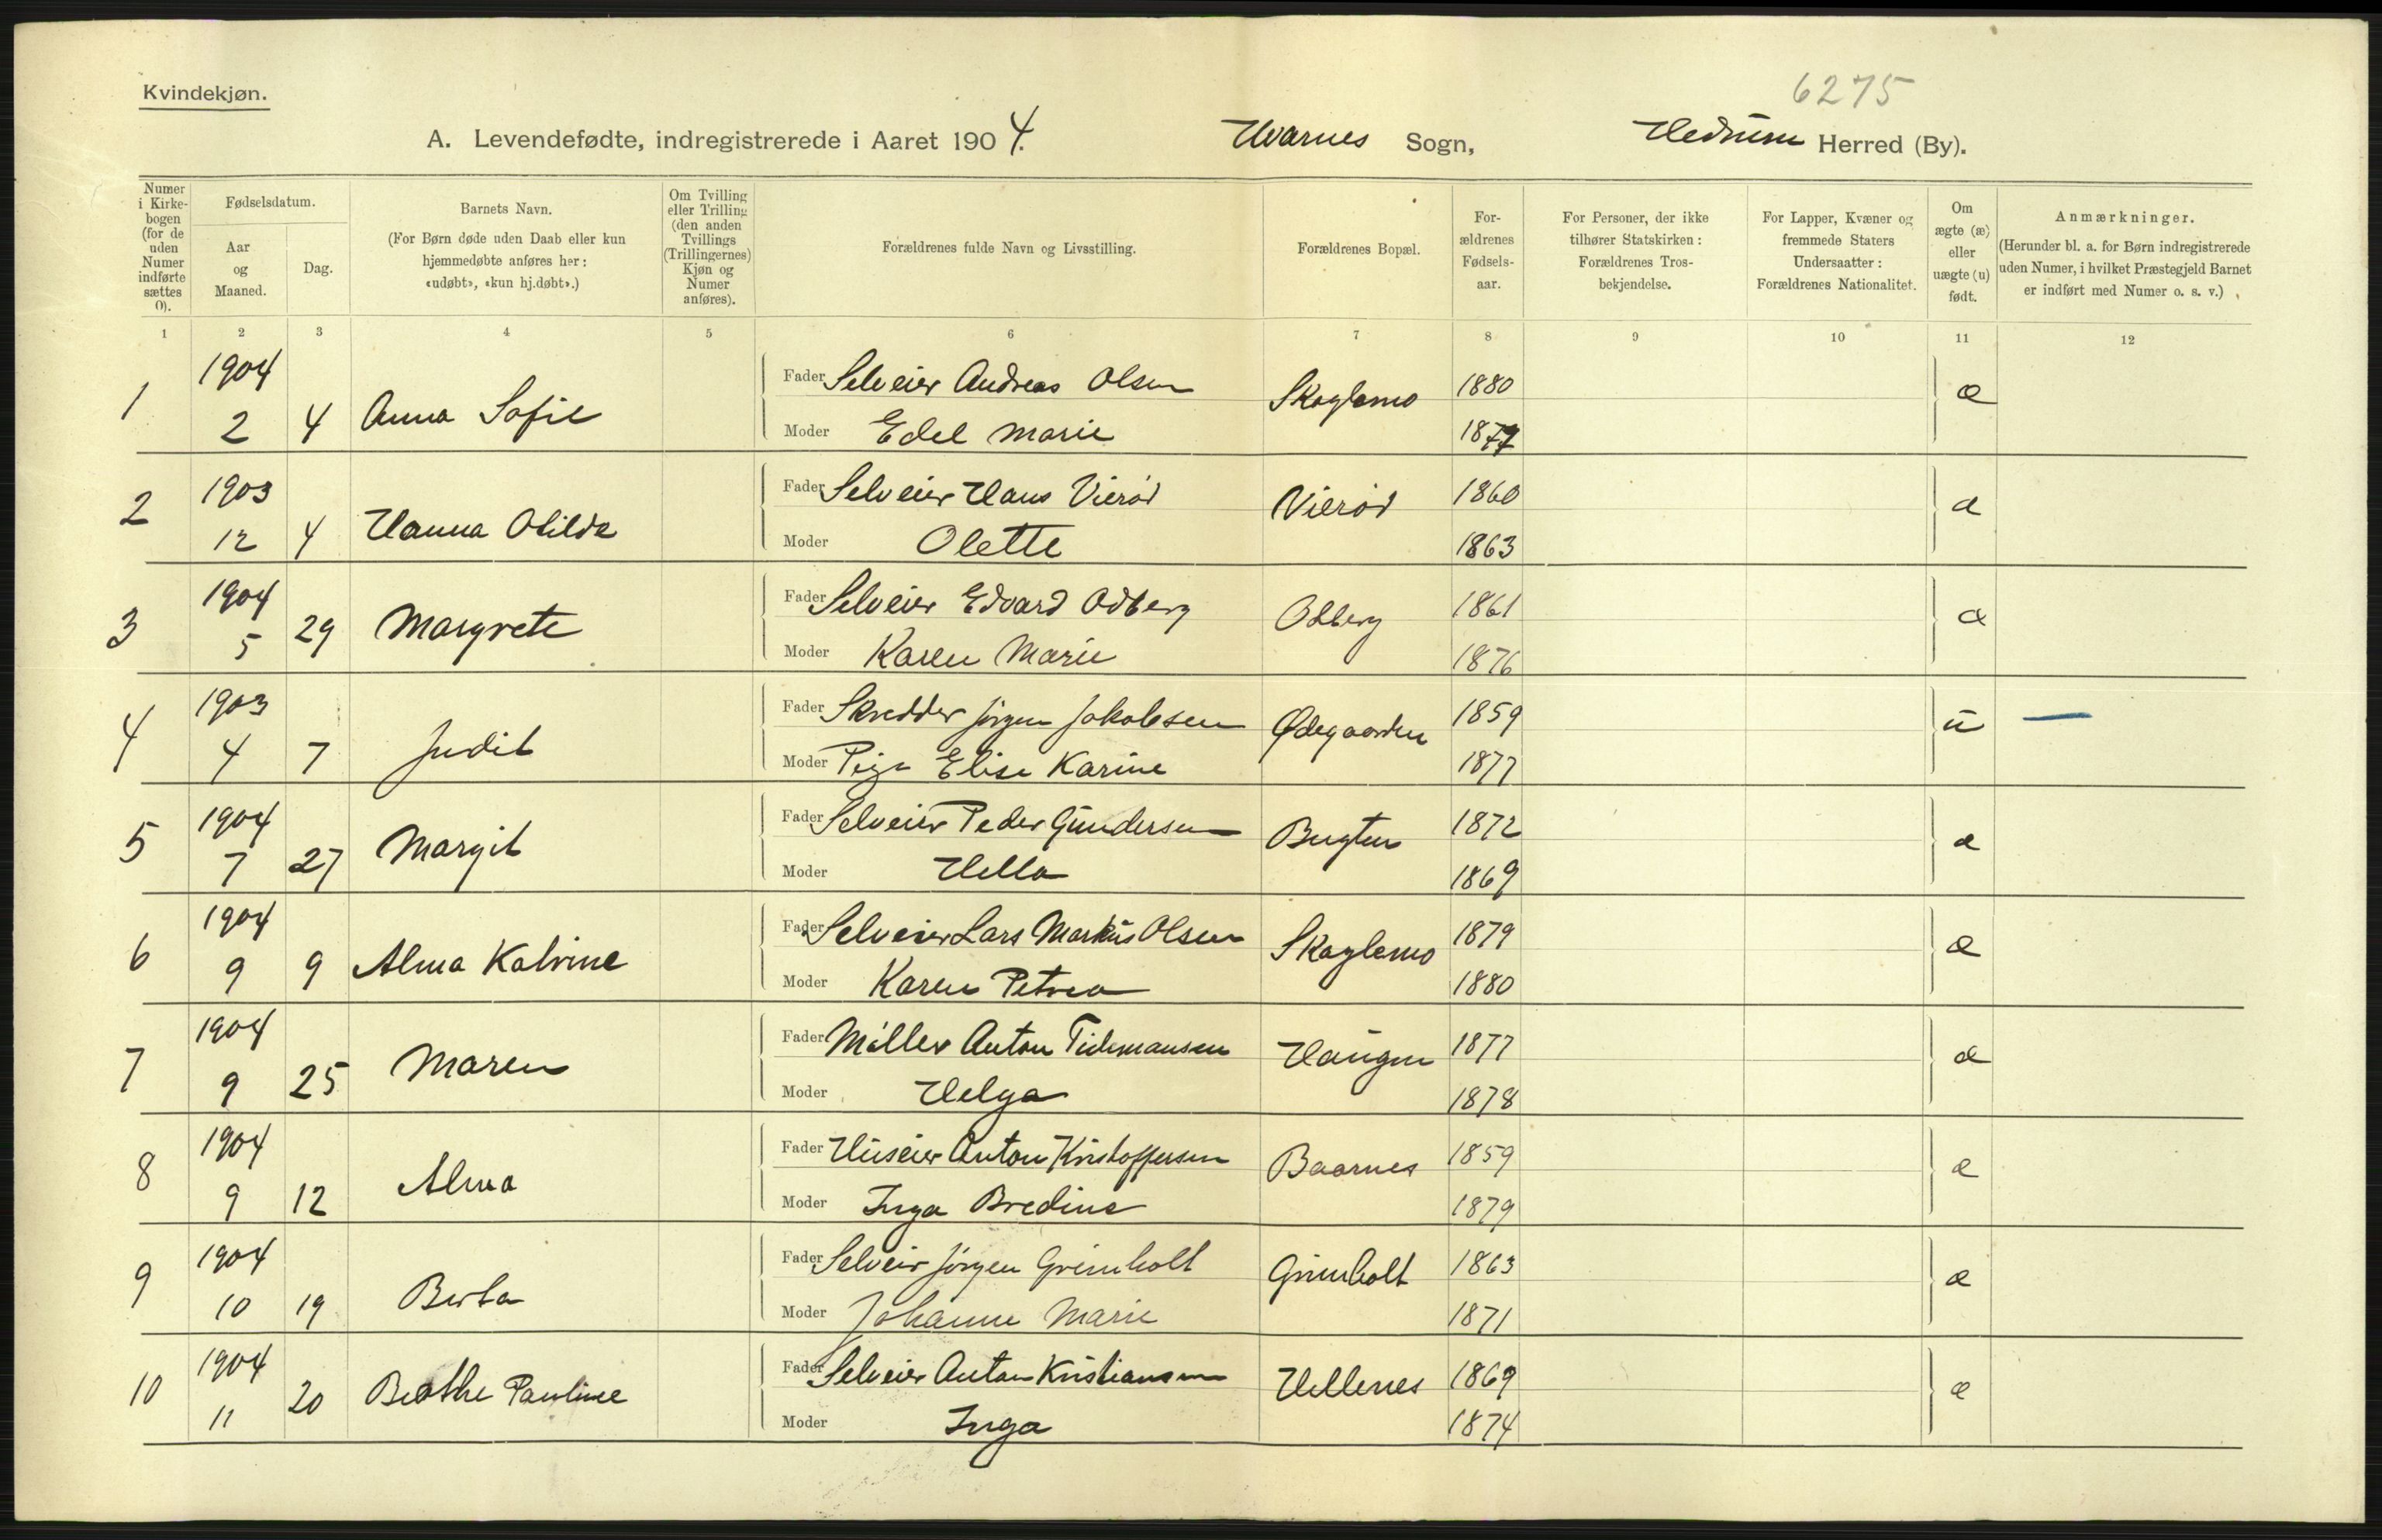 6275
Kvindekjøn.
A. Levendefødte, indregistrerede i Aaret 1904. Hvarnes Sogn, Hedrum Herred (By).
Numer i Kirkebogen (for de uden Numer indførte sættes 0).
Fødselsdatum.
Aar og Maaned.
Dag.
Barnets Navn.
(For Børn døde uden Daab eller kun hjemmedøbte anføres her: «udøbt», «kun hj.døbt».)
Om Tvilling eller Trilling (den anden Tvillings (Trillingernes) Kjøn og Numer anføres).
Forældrenes fulde Navn og Livsstilling.
Forældrenes Bopæl.
Forældrenes Fødselsaar.
For Personer, der ikke tilhører Statskirken: Forældrenes Trosbekjendelse.
For Lapper, Kvæner og fremmede Staters Undersaatter: Forældrenes Nationalitet.
Om ægte (æ) eller uægte (u) født.
Anmærkninger.
(Herunder bl. a. for Børn indregistrerede uden Numer, i hvilket Præstegjeld Barnet er indført med Numer o. s. v.)
1 2 3 4 5 6 7 8 9 10 11 12
1 1904 2 4 Anna Sofie Fader Selveier Andreas Olsen Skoglemo 1880 æ
Moder Edel Marie 1877
2 1903 12 4 Hanna Otilde Fader Selveier Hans Vierød Vierød 1860 æ
Moder Olette 1863
3 1904 5 29 Margrete Fader Selveier Edvard Odberg Odberg 1861 æ
Moder Karen Marie 1876
4 1903 4 7 Judit Fader Skredder Jørgen Jakobsen Ødegaarden 1859 u —
Moder Pige Elise Karine 1877
5 1904 7 27 Margit Fader Selveier Peder Gundersen Bugten 1872 æ
Moder Hella 1869
6 1904 9 9 Alma Katrine Fader Selveier Lars Markus Olsen Skoglemo 1879 æ
Moder Karen Petrea 1880
7 1904 9 25 Maren Fader Møller Anton Tidemansen Haugen 1877 æ
Moder Helga 1878
8 1904 9 12 Alma Fader Huseier Anton Kristoffersen Baarnes 1859 æ
Moder Inga Bredine 1879
9 1904 10 19 Berta Fader Selveier Jørgen Grimholt Grimholt 1863 æ
Moder Johanne Marie 1871
10 1904 11 20 Beathe Pauline Fader Selveier Anton Kristiansen Hellenes 1869 æ
Moder Inga 1874